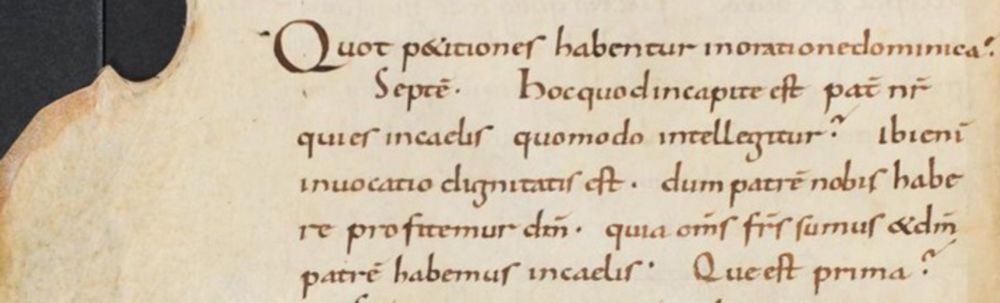 Quot p&itiones habentur inorationedominica?
Septē. Hocquodincapite est pat̄ nr̄
quies incaelis quomodo intellegitur? Ibieni
inuocatio dignitatis est. dum patrē nobis habe
re profitemur dm̄. quia om̄s fr̄s sumus &dm̄
patrē habemus incaelis. Que est prima?